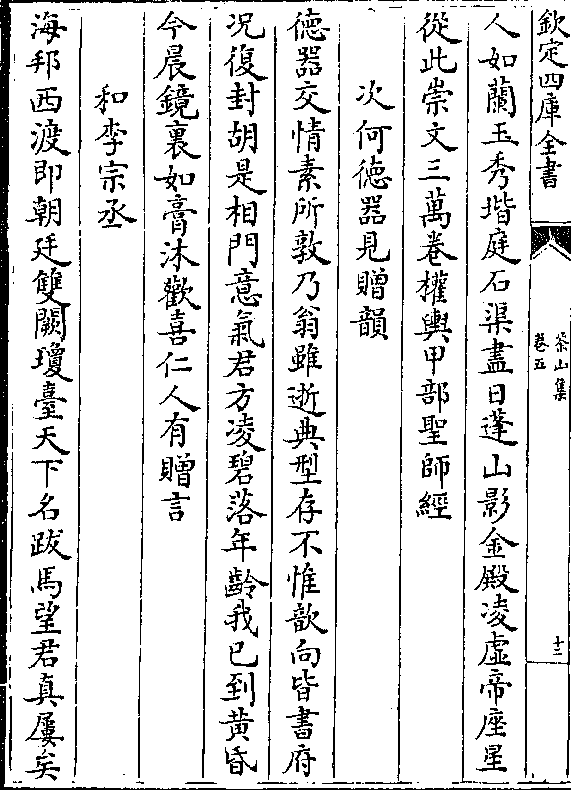 欽定四庫全書
茶山集
卷五
十三
人如蘭玉秀堦庭石渠盡日蓬山影金殿凌虚帝座星
從此崇文三萬卷權輿甲部聖師經
次何徳器見贈韻
德器交情素所敦乃翁雖逝典型存不惟歆向皆書府
况復封胡是相門意氣君方凌碧落年齡我已到黄昏
今晨鏡裏如膏沐歡喜仁人有贈言
和李宗丞
海邦西渡即朝廷雙闕瓊臺天下名跋馬望君真屢矣